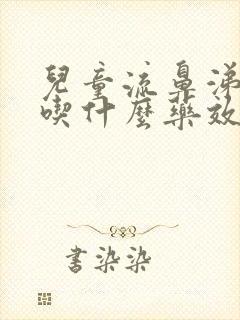 兒童流鼻涕
喫什麼藥效
書染染